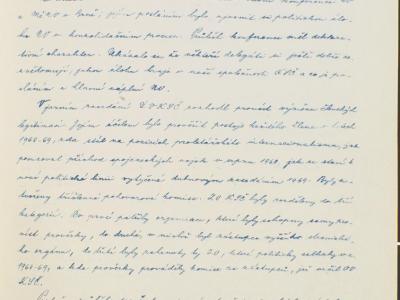 a MěNV v Brně; jejím posláním bylo upevnit si politickou úlo-
hu NV v konsolidačním procesu. Průběh konference měl deklara-
tivní charakter. Ukázalo se, že někteří delegáti si ještě dobře ne-
uvědomují, jakou úlohu hraje v naší společnosti KSČ a co je po-
sláním a hlavní náplní NV.
V jarním zasedání ÚV KSČ rozhodl provést výměnu členských
legitimací. Jejím účelem bylo prověřit postoje každého člena v letech
1968-69, zda stál na pozicích proletářského internacionalismu, jak
pomáhal příchod spojeneckých vojsk v srpnu 1968, jak se staví k
nové politické linii vytyčené dubnovým zasedáním 1969. Byly u-
tvořeny tříčlenné pohovorové komise. ZO KSČ byly rozděleny do tří
kategorií. Do prvé patřily organizace, které byly schopny samy pro-
vést prověrky, do druhé, v nichž byl zástupce vyššího stranické-
ho orgánu, do třetí byly zařazeny ty ZO, které politicky selhaly v r.
1968-69, a kde prověrky prováděly komise ze zástupců, jež určil OV
KSČ.